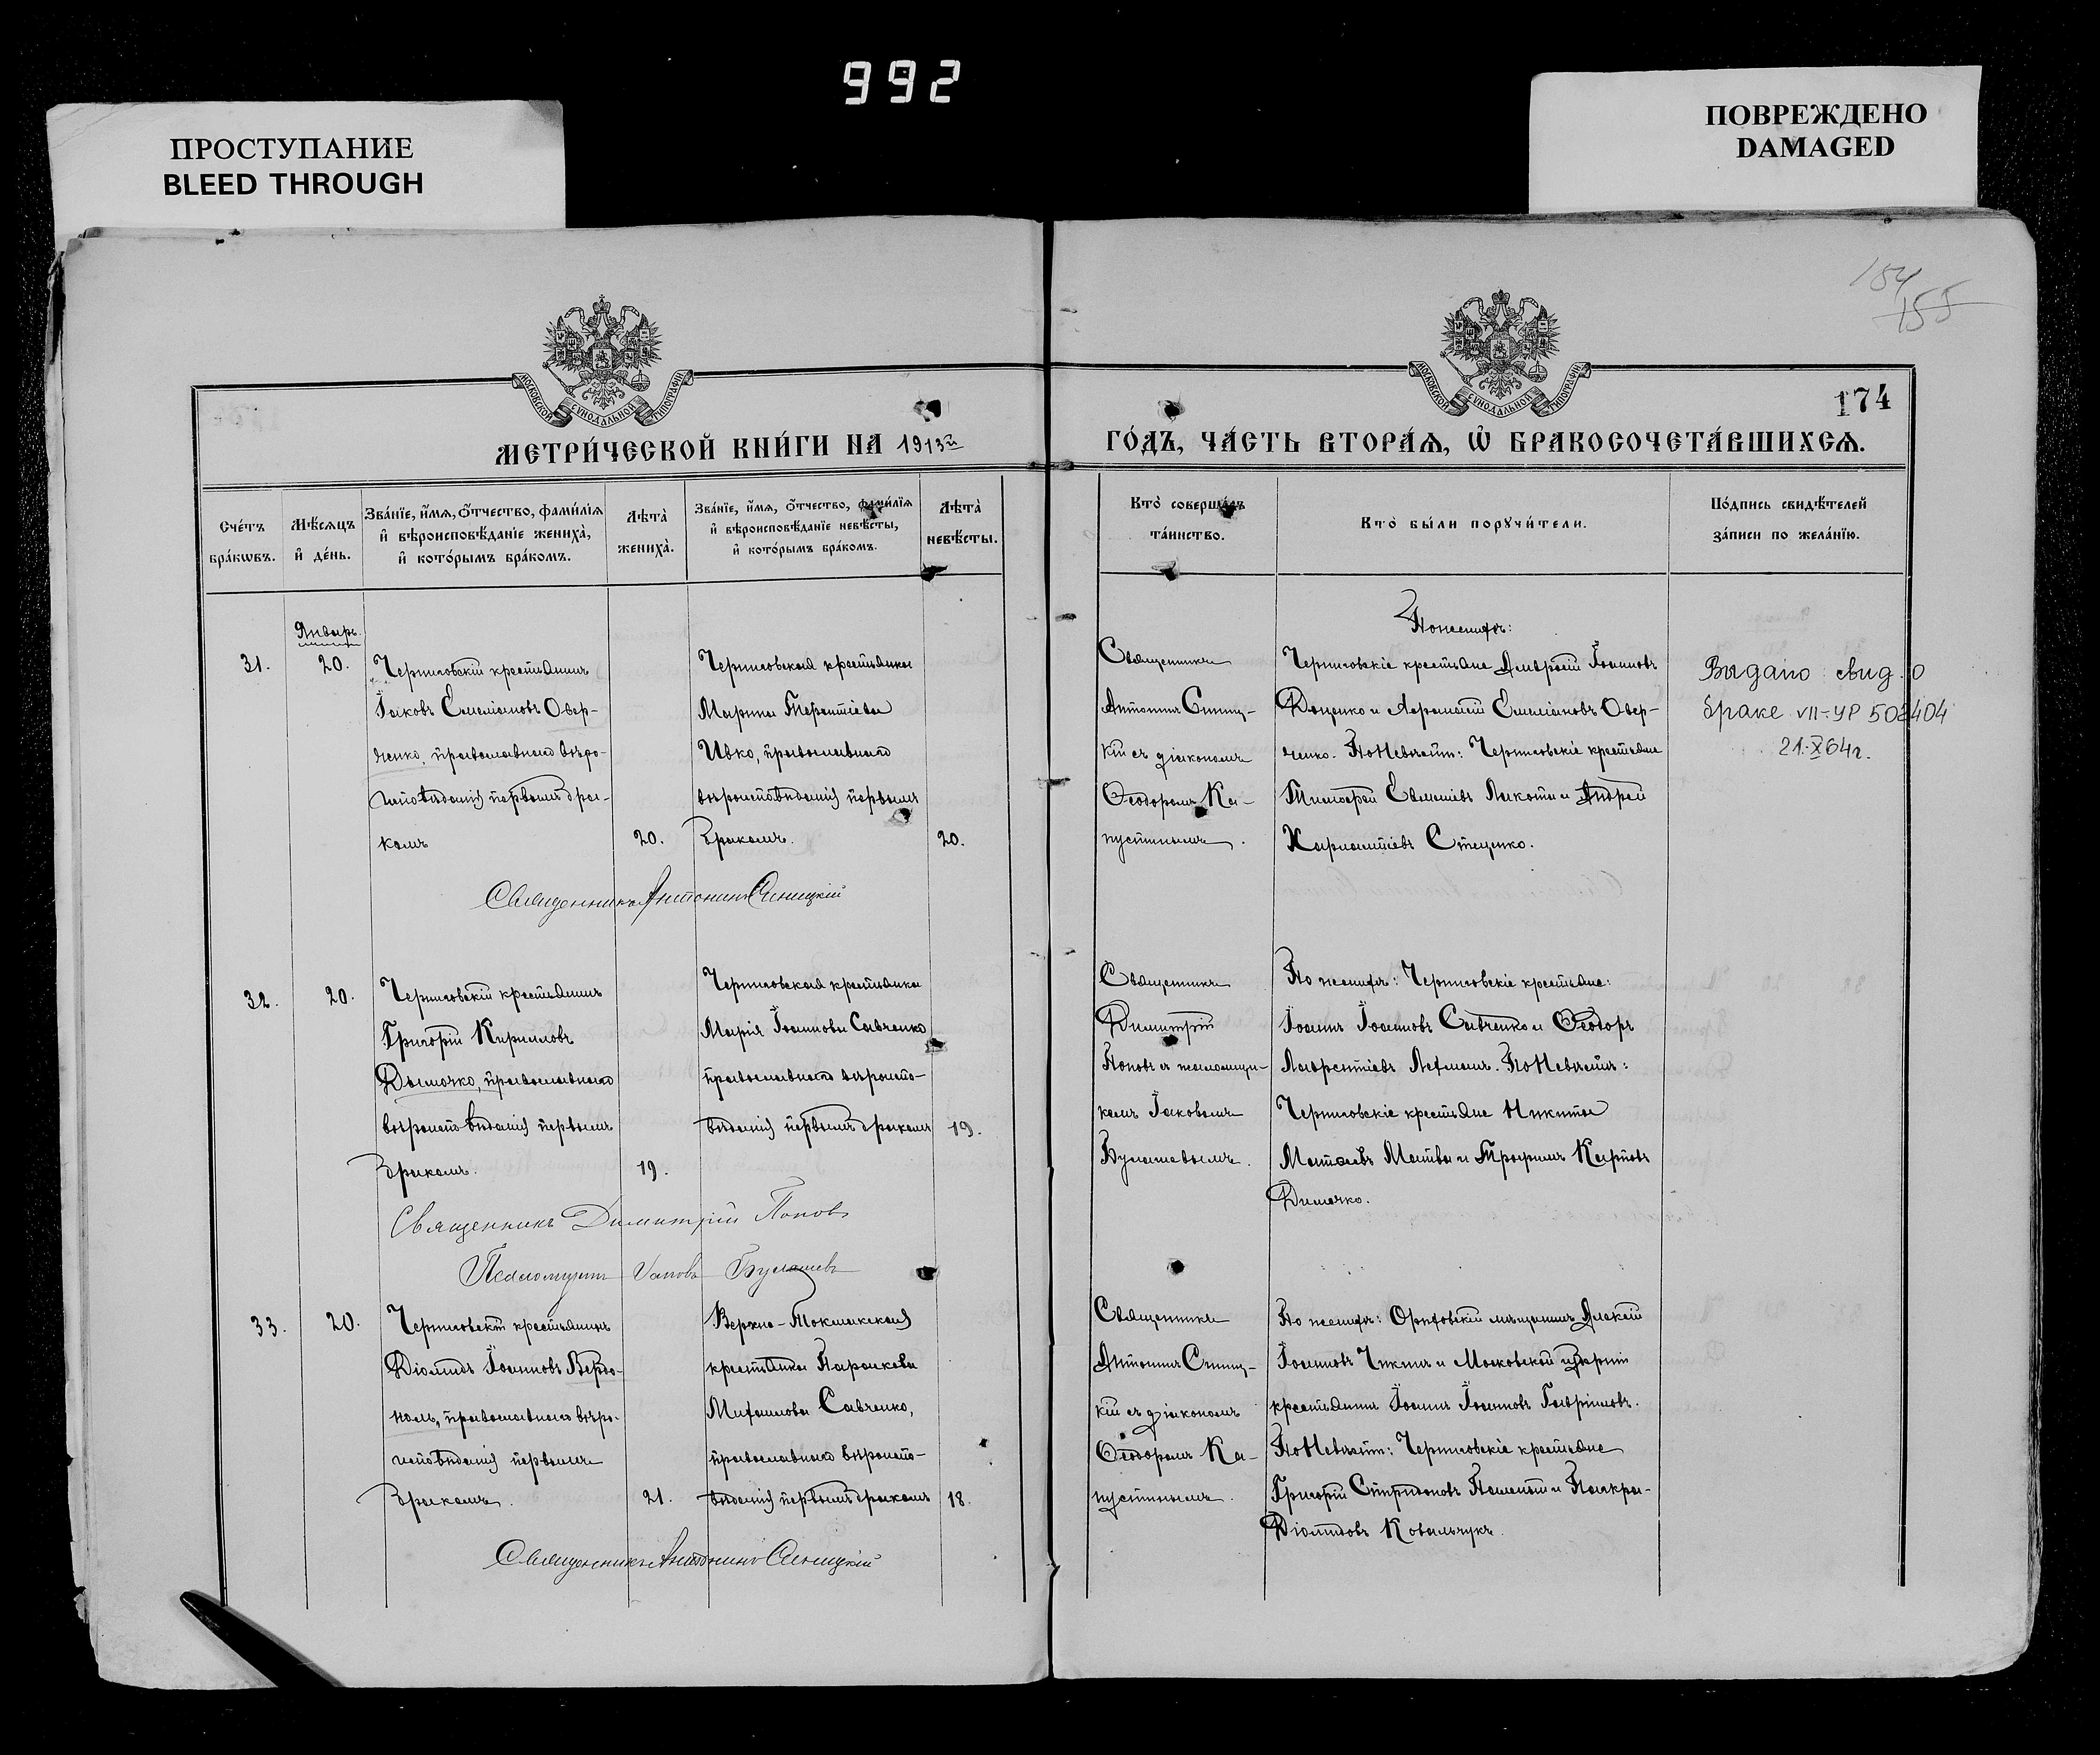 992
ПРОСТУПАНИЕ
BLEED THROUGH
ПОВРЕЖДЕНО
DAMAGED
154
155
174
МОСКОВСКОЙ СУНОДАЛЬНОЙ ТИПОГРАФІИ
МОСКОВСКОЙ СУНОДАЛЬНОЙ ТИПОГРАФІИ
МЕТРИ́ЧЕСКОЙ КНИ́ГИ НА 1913й
ГО́ДЪ, ЧА́СТЬ ВТОРА́Ѧ, Ѽ БРАКОСОЧЕТА́ВШИХСѦ.
Сче́тъ
бра́кѡвъ.
Мѣ́сяцъ
и҆ де́нь.
Зва́нїе, и҆́мя, ѻ҆́тчество, фами́лїя
и҆ вѣроисповѣ́данїе жениха̀,
и҆ кото́рымъ бра́комъ.
Лѣта̀
жениха̀.
Зва́нїе, и҆́мя, ѻ҆́тчество, фами́лїя
и҆ вѣроисповѣ́данїе невѣ́сты,
и҆ кото́рымъ бра́комъ.
Лѣта̀
невѣ́сты.
Кто̀ соверша́лъ
та́инство.
Кто̀ бы́ли порꙋчи́тели.
По́дпись свидѣ́телей
за́писи по жела́нїю.
31.
Январь.
20.
Черниговскій крестьянинъ
Іаковъ Емеліановъ Овер-
ченко, православнаго вѣро-
исповѣданія первымъ бра-
комъ
20.
Черниговская крестьянка
Марина Терентіева
Ивко, православнаго
вѣроисповѣданія первымъ
бракомъ.
20.
Священникъ
Антонинъ Синиц-
кій съ діакономъ
Ѳеодоромъ Ка-
пустинымъ.
По женихѣ:
Черниговскіе крестьяне Амвросій Іоанновъ
Доценко и Авраамій Емиліановъ Овер-
ченко. По невѣстѣ: Черниговскіе крестьяне
Тимоѳей Евменіевъ Лакота и Андрей
Харлампіевъ Стеценко.
Выдано свид. о
браке VII-УР 502404
21.X64г.
Священникъ Антонинъ Синицкій
32.
20.
Черниговскій крестьянинъ
Григорій Кирилловъ
Дымочко, православнаго
вѣроисповѣданія первымъ
бракомъ.
19.
Черниговская крестьянка
Марія Іоаннова Савченко
православнаго вѣроиспо-
вѣданія первымъ бракомъ
19.
Священникъ
Димитрій
Поповъ и псаломщи-
комъ Іаковомъ
Булашевымъ.
По женихѣ: Черниговскіе крестьяне:
Іоаннъ Іоанновъ Савченко и Ѳеодоръ
Лаврентіевъ Лехманъ. По невѣстѣ:
Черниговскіе крестьяне Никита
Матѳеевъ Матва и Трофимъ Карповъ
Димочко.
Священникъ Димитрій Поповъ
Псаломщикъ Іаковъ Булашевъ
33.
20.
Черниговскій крестьянинъ
Діомидъ Іоанновъ Вербо-
ноль, православнаго вѣро-
исповѣданія первымъ
бракомъ.
21.
Верхне-Токмакская
крестьянка Параскева
Михаилова Савченко,
православнаго вѣроиспо-
вѣданія первымъ бракомъ
18.
Священникъ
Антонинъ Синиц-
кій съ діакономъ
Ѳеодоромъ Ка-
пустинымъ.
По женихѣ: Орѣховскій мѣщанинъ Алексій
Іоанновъ Чикинъ и Московской губерніи
крестьянинъ Іоаннъ Іоанновъ Гавриловъ.
По невѣстѣ: Черниговскіе крестьяне
Григорій Спиридоновъ и Панкра-
Діомидовъ Ковальчукъ.
Священникъ Антонинъ Синицкій